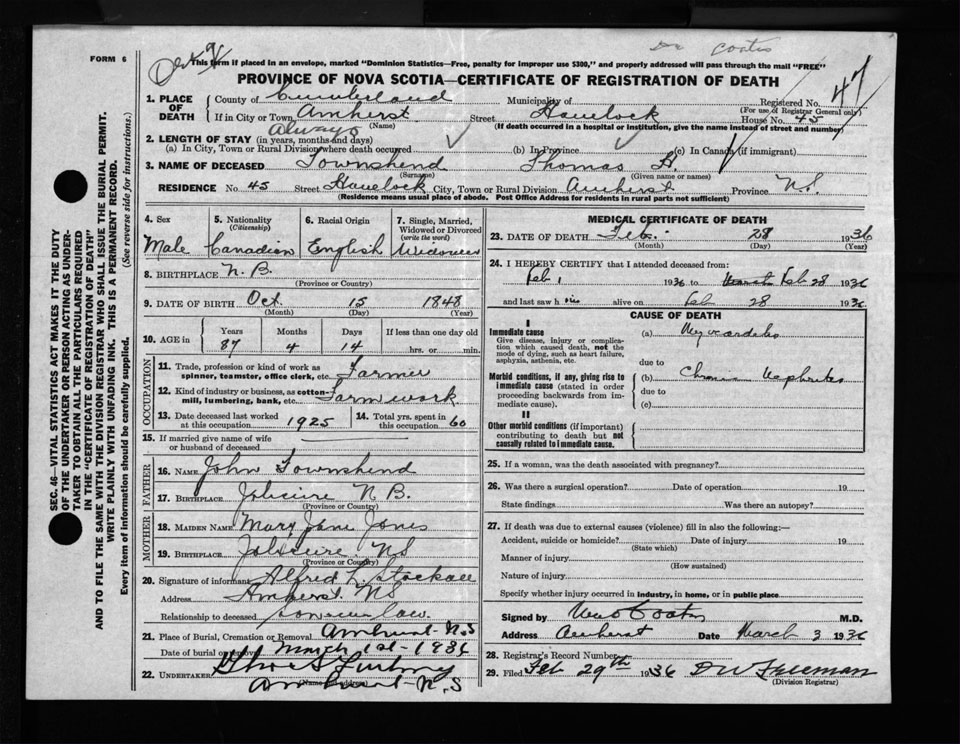 Dr Coates
FORM 6
This form if placed in an envelope, marked "Dominion Statistics—Free, penalty for improper use $300," and properly addressed will pass through the mail "FREE"
PROVINCE OF NOVA SCOTIA—CERTIFICATE OF REGISTRATION OF DEATH
47
1. PLACE OF DEATH
County of Cumberland Municipality of Registered No.
(For use of Registrar General only)
If in City or Town Amherst Street Havelock House No. 45
(Name) (If death occurred in a hospital or institution, give the name instead of street and number)
2. LENGTH OF STAY (in years, months and days)
Always
(a) In City, Town or Rural Division where death occurred (b) In Province (c) In Canada (if immigrant)
3. NAME OF DECEASED Townshend Thomas H.
(Surname) (Given name or names)
RESIDENCE No. 45 Street Havelock City, Town or Rural Division Amherst Province N.S.
(Residence means usual place of abode. Post Office Address for residents in rural parts not sufficient)
SEC. 46—VITAL STATISTICS ACT MAKES IT THE DUTY
OF THE UNDERTAKER OR PERSON ACTING AS UNDER-
TAKER TO OBTAIN ALL THE PARTICULARS REQUIRED
IN THE "CERTIFICATE OF REGISTRATION OF DEATH"
AND TO FILE THE SAME WITH THE DIVISION REGISTRAR WHO SHALL ISSUE THE BURIAL PERMIT.
WRITE PLAINLY WITH UNFADING INK. THIS IS A PERMANENT RECORD.
Every item of information should be carefully supplied. (See reverse side for instructions.)
4. Sex 5. Nationality (Citizenship) 6. Racial Origin 7. Single, Married, Widowed or Divorced (write the word)
Male Canadian English Widower
8. BIRTHPLACE N.B.
(Province or Country)
9. DATE OF BIRTH Oct 15 1848
(Month) (Day) (Year)
10. AGE in Years Months Days If less than one day old
87 4 14 hrs. or min.
OCCUPATION
11. Trade, profession or kind of work as spinner, teamster, office clerk, etc. Farmer
12. Kind of industry or business, as cotton-mill, lumbering, bank, etc. Farm work
13. Date deceased last worked at this occupation 1925
14. Total yrs. spent in this occupation 60
15. If married give name of wife or husband of deceased
FATHER
16. NAME John Townshend
17. BIRTHPLACE Jolicure N.B.
(Province or Country)
MOTHER
18. MAIDEN NAME Mary Jane Jones
19. BIRTHPLACE Jolicure NS
(Province or Country)
20. Signature of informant Alfred
Address Amherst NS
Relationship to deceased son in law
21. Place of Burial, Cremation or Removal Amherst N.S
Date of burial or removal March 1st - 1936
22. UNDERTAKER
Amherst - N.S
MEDICAL CERTIFICATE OF DEATH
23. DATE OF DEATH Feb. 28 1936
(Month) (Day) (Year)
24. I HEREBY CERTIFY that I attended deceased from:
Feb 1 1936 to March Feb 28 1936
and last saw him alive on Feb 28 1936
CAUSE OF DEATH
I
Immediate cause
Give disease, injury or complication which caused death, not the mode of dying, such as heart failure, asphyxia, asthenia, etc.
(a) Myocarditis
due to
Morbid conditions, if any, giving rise to immediate cause (stated in order proceeding backwards from immediate cause).
(b) Chronic Nephritis
due to
(c)
II
Other morbid conditions (if important) contributing to death but not causally related to immediate cause.
25. If a woman, was the death associated with pregnancy?
26. Was there a surgical operation? Date of operation 19
State findings Was there an autopsy?
27. If death was due to external causes (violence) fill in also the following:—
Accident, suicide or homicide? Date of injury 19
(State which)
Manner of injury
(How sustained)
Nature of injury
Specify whether injury occurred in industry, in home, or in public place
Signed by Coates M.D.
Address Amherst Date March 3 1936
28. Registrar's Record Number
29. Filed Feb 29th 1936 D W Freeman
(Division Registrar)